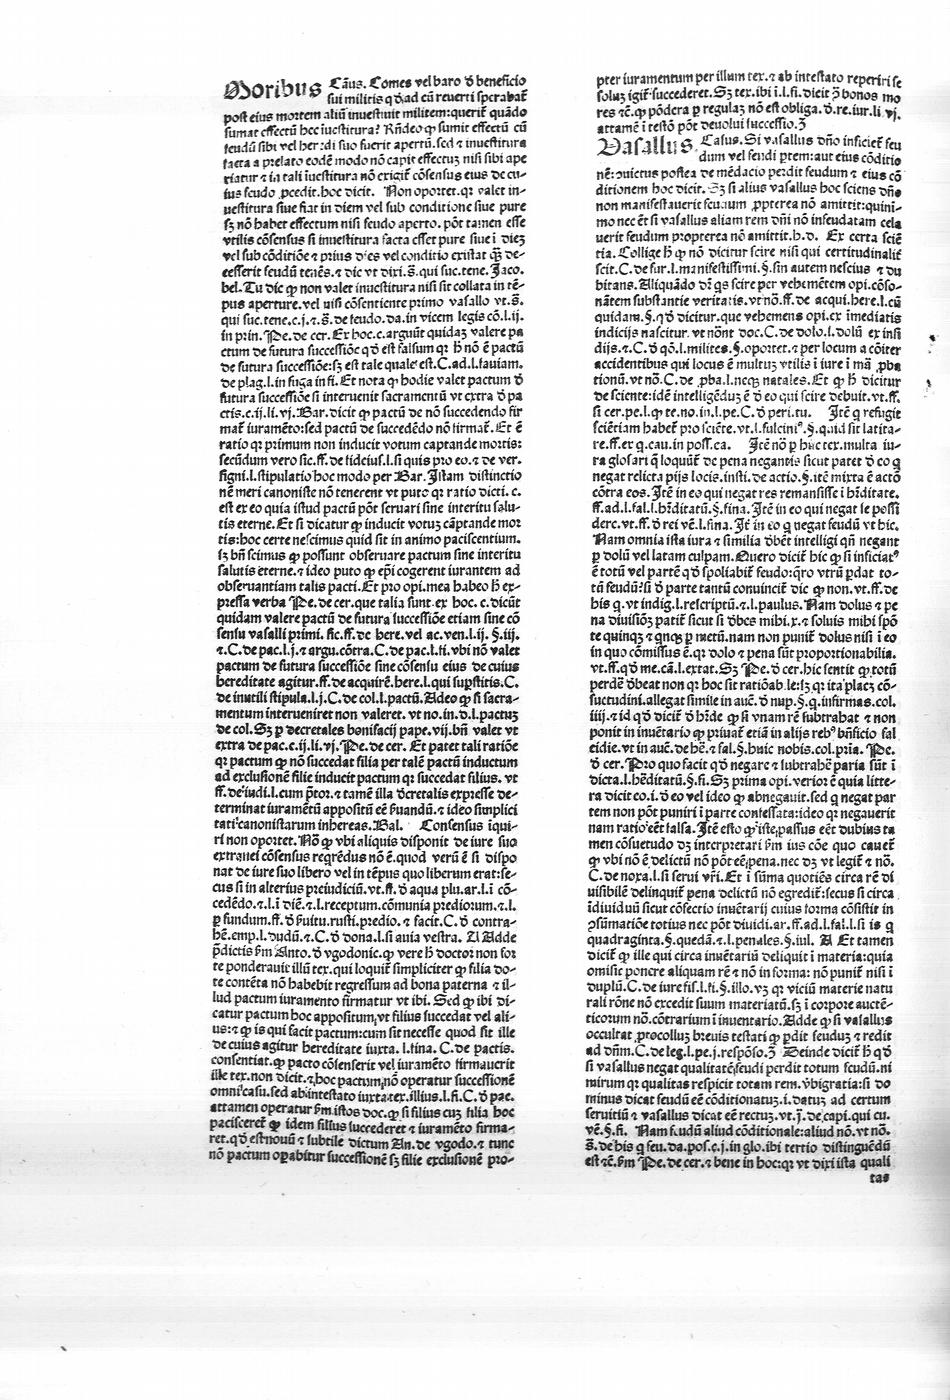 Moribus Casus. Comes vel baro d̄ beneficio
sui militis qđ ad cū reverti sperabat̄
post eius mortem aliū inuestiuit militem: querit̄ quādo
sumat effectū hec īuestitura? Rn̄deo ꝙ sumit effectū cū
feudū sibi vel heredi suo fuerit apertū. sed ⁊ inuestitura
facta a prelato eodē modo nō capit effectuꝫ nisi sibi ape
riatur ⁊ in tali iuestitura nō exigit̄ cōsensus eius de cu-
ius feudo ꝓcedit. hoc dicit. Non oportet. qꝛ valet in-
uestitura siue fiat in diem vel sub conditione siue pure
sꝫ nō habet effectum nisi feudo aperto. pōt tamen esse
vtilis cōsensus si inuestitura facta esset pure siue ī dieꝫ
vel sub cōditiōe ⁊ prius dies vel conditio existat ꝙ̄ de-
cesserit feudū tenēs. ⁊ dic vt dixi. s̄. qui suc. tene. Jaco.
bel. Tu dic ꝙ non valet inuestitura nisi sit collata in tē-
pus aperture. vel nisi cōsentiente primo vasallo vt. s̄.
qui suc. tene. c. j. ⁊. s̄. de feudo. da. in vicem legis cō. l. ij.
in prin. Pe. de cer. Ex hoc. c. arguūt quidaꝫ valere pa
ctum de futura successiōe qđ est falsum qꝛ h̄ nō ē pactū
de futura successiōe: sꝫ est tale quale est. C. ad. l. fauiam.
de plag. l. in fuga in fi. Et nota ꝙ hodie valet pactum d̄
futura successiōe si interuenit sacramentū vt extra d̄ pa
ctis. c. ij. li. vj. Bar. dicit ꝙ pactū de nō succedendo fir
mat̄ iuramēto: sed pactū de succedēdo nō firmat̄. Et ē
ratio qꝛ primum non inducit votum captande mortis:
secūdum vero sic. ff. de fideius. l. si quis pro eo. ⁊ de ver.
signi. l. stipulatio hoc modo per Bar. Istam distinctio
nē meri canoniste nō tenerent vt puto qꝛ ratio dicti. c.
est ex eo quia istud pactū pōt seruari sine interitu salu-
tis eterne. Et si dicatur ꝙ inducit votuꝫ cāptande mor
tis: hoc certe nescimus quid sit in animo paciscentium.
sꝫ bn̄ scimus ꝙ possunt obseruare pactum sine interitu
salutis eterne. ⁊ ideo puto ꝙ ep̄i cogerent iurantem ad
obseruantiam talis pacti. Et pro opi. mea habeo h̄ ex-
pressa verba Pe. de cer. que talia sunt. ex hoc. c. dicūt
quidam valere pactū de futura successiōe etiam sine cō
sensu vasalli primi. sic. ff. de here. vel ac. ven. l. ij. §. iij.
⁊. C. de pac. l. j. ⁊ argu. cōtra. C. de pac. l. fi. vbi nō valet
pactum de futura successiōe sine cōsensu eius de cuius
hereditate agitur. ff. de acquirē. here. l. qui suꝑstitis. C.
de inutili stipula. l. j. C. de col. l. pactū. Adeo ꝙ si sacra-
mentum interueniret non valeret. vt no. in. d. l. pactuꝫ
de col. Sꝫ ꝑ decretales bonifacij pape. vij. bn̄ valet vt
extra de pac. c. ij. li. vj. Pe. de cer. Et patet tali ratiōe
qꝛ pactum ꝙ nō succedat filia per talē pactū inductum
ad exclusionē filie inducit pactum qꝛ succedat filius. vt
ff. de iudi. l. cum p̄tor. ⁊ tamē illa d̄cretalis expresse de-
terminat iuramētū appositū eē ẜuandū. ⁊ ideo simplici
tati canonistarum inhereas. Bal. Consensus iqui-
ri non oportet. Nō ꝙ vbi aliquis disponit de iure suo
extranei cōsensus reqrēdus nō ē. quod verū ē si dispo
nat de iure suo libero vel in tēpus quo liberum erat: se-
cus si in alterius preiudiciū. vt. ff. d̄ aqua plu. ar. l. ī cō-
cedēdo. ⁊. l. ī diē. ⁊. l. receptum. cōmunia prediorum. ⁊. l.
ꝑ fundum. ff. d̄ ẜuitu. rusti. predio. ⁊ facit. C. d̄ contra-
hē. emp. l. dudū. ⁊. C. d̄ dona. l. si auia vestra. Adde
p̄dictis ẜm Anto. d̄ vgodonic. ꝙ vere h̄ doctor non for
te ponderauit illū tex. qui loquit̄ simpliciter ꝙ filia do-
te contēta nō habebit regressum ad bona paterna ⁊ il-
lud pactum iuramento firmatur vt ibi. Sed ꝙ ibi di-
catur pactum hoc appositum, vt filius succedat vel ali-
us: ⁊ ꝙ is qui facit pactum: cum sit necesse quod sit ille
de cuius agitur hereditate iuxta. l. fina. C. de pactis.
consentiat. ꝙ pacto cōsenserit vel iuramēto firmauerit
ille tex. non dicit. ⁊ hoc pactum, nō operatur successionē
omni casu. sed ab intestato iuxta tex. illius. l. fi. C. d̄ pac.
attamen operatur ẜm. istos doc. ꝙ si filius cuꝫ filia hoc
pacisceret̄ ꝙ idem filius succederet ⁊ iuramēto firma-
ret. qđ est nouū ⁊ subtile dictum An. de vgodo. ⁊ tunc
nō pactum oꝑabitur successionē sꝫ filie exclusionē pro-
pter iuramentum per illum tex. ⁊ ab intestato reperiri se
soluꝫ igit̄ succederet. Sꝫ tex. ibi ī. l. fi. dicit ꝯ̄ bonos mo
res ⁊c̄. ꝙ pōdera ꝑ regulaꝫ nō est obliga. d̄. re. iur. li. vj.
attamē ī testō pōt deuolui successio.
Vasallus Casus. Si vasallus dn̄o inficiet̄ feu
dum vel feudi ꝑtem: aut eius cōditio
nē: ꝯuictus postea de mēdacio ꝑdit feudum ⁊ eius cō
ditionem hoc dicit. Sꝫ si alius vasallus hoc sciens dn̄o
non manifestauerit feudum ꝓpterea nō amittit: quini-
mo nec ēt si vasallus aliam rem dn̄i nō infeudatam cela
uerit feudum propterea nō amittit. h. d. Ex certa sciē
tia. Collige h̄ ꝙ nō dicitur scire nisi qui certitudinalit̄
scit. C. de fur. l. manifestissimi. §. sin autem nescius ⁊ du
bitans. Aliquādo dr̄ qs scire per vehemētem opi. cōso-
nātem substantie veritatis. vt nō. ff. de acqui. here. l. cū
quidam. §. qđ dicitur. que vehemens opi. ex īmediatis
indicijs nascitur. vt nōnt doc. C. de dolo. l. dolū ex insi
dijs. ⁊. C. d̄ qō. l. milites. §. oportet. ⁊ per locum a cōiter
accidentibus qui locus ē multuꝫ vtilis ī iure ī mā ꝓba
tionū. vt nō. C. de ꝓba. l. necꝫ natales. Et ꝙ h̄ dicitur
de sciente: idē intelligēduꝫ ē d̄ eo qui scire debuit. vt. ff.
si cer. pe. l. ꝙ te. no. in. l. pe. C. d̄ peri. tu. Itē q refugit
sciētiam habet̄ pro sciēte. vt. l. fulciniꝰ. §. quid sit latita-
re. ff. ex q. cau. in poss. ea. Itē nō ꝑ huc tex. multa iu-
ra glosari q̄ loquūt̄ de pena negantis sicut patet d̄ eo q
negat relicta pijs locis. insti. de actio. §. itē mixta ē actō
cōtra eos. Itē in eo qui negat res remansisse ī hr̄ditate.
ff. ad. l. fal. l. hr̄ditatū. §. fina. Itē in eo qui negat se possi
dere. vt. ff. d̄ rei vē. l. fina. Itē in eo q negat feudū vt hic.
Nam omnia ista iura ⁊ similia d̄bēt intelligi qn̄ negant
ꝑ dolū vel latam culpam. Quero dicit̄ hic ꝙ si inficiatꝰ
ē totū vel partē qđ spoliabit̄ feudo: q̄ro vtrū ꝑdat to-
tū feudū: si d̄ parte tantū conuincit̄ dic ꝙ non. vt. ff. de
his q. vt indig. l. rescriptū. ⁊. l. paulus. Nam dolus ⁊ pe
na diuisiōꝫ patit̄ sicut si d̄bes mihi. x. ⁊ soluis mihi spō
te quinqꝫ ⁊ qnqꝫ ꝑ metū. nam non punit̄ dolus nisi ī eo
in quo cōmissus ē. qꝛ dolo ⁊ pena sūt proportionabilia.
vt. ff. qđ me. cā. l. extat. Sꝫ Pe. d̄ cer. hic sentit ꝙ totū
perdē d̄beat non qꝛ hoc sit ratiōabile: sꝫ qꝛ ita placꝫ cō-
suetudini. allegat simile in auc̄. d̄ nup. §. q. infirmas. col.
iiij. ⁊ id qđ dicit̄ d̄ hr̄de ꝙ si vnam rē subtrahat ⁊ non
ponit in inuētario ꝙ priuat̄ etiā in alijs rebꝰ bn̄ficio fal
cidie. vt in auc̄. de hē. ⁊ fal. §. huic nobis. col. pria. Pe.
d̄ cer. Pro quo facit qđ negare ⁊ subtrahē paria sūt ī
dicta. l. hēditatū. §. fi. Sꝫ prima opi. verior ē quia litte-
ra dicit co. i. d̄ eo vel ideo ꝙ abnegauit. sed q negat par
tem non pōt puniri ī parte confessata: ideo qꝛ negauerit
nam ratio eēt falsa. Itē esto ꝙ iste, passus eēt dubius ta
men cōsuetudo dꝫ interpretari ẜm ius cōe quo cauet̄
ꝙ vbi nō ē delictū nō pōt eē, pena. nec dꝫ vt legit̄ ⁊ nō.
C. de noxa. l. si serui vr̄i. Et ī sūma quotiēs circa rē di
uisibilē delinquit̄ pena delictū nō egredit̄: secus si circa
īdiuiduū sicut cōfectio inuētarij cuius forma cōsistit in
ꝯsūmatiōe totius nec pōt diuidi. ar. ff. ad. l. fal. l. si is q
quadraginta. §. quedā. ⁊. l. penales. §. iul. A Et tamen
dicit̄ ꝙ ille qui circa inuētariū deliquit ī materia: quia
omisit ponere aliquam rē ⁊ nō in forma: nō punit̄ nisi ī
duplū. C. de iure fis. l. fi. §. illo. vꝫ qꝛ viciū materie natu
rali rōne nō excedit suum materiatū. sꝫ ī corpore auctē-
ticorum nō. cōtrarium ī inuentario. Adde ꝙ si vasallus
occultat ꝓtocolluꝫ breuis testati ꝙ ꝑdit feuduꝫ ⁊ redit
ad dn̄m. C. de leg. l. pe. j. respōso. Deinde dicit̄ h̄ qđ
si vasallus negat qualitatē feudi perdit totum feudū. ni
mirum qꝛ qualitas respicit totam rem. v̄bigratia: si do
minus dicat feudū eē cōditionatuꝫ. i. datuꝫ ad certum
seruitiū ⁊ vasallus dicat eē rectuꝫ. vt. j̄. de, capi. qui cu.
vē. §. fi. Nam feudū aliud cōditionale: aliud nō. vt nō.
s̄. de his q feu. da. pos. c. j. in glo. ibi tertio distinguēdū
est ⁊c̄. ẜm Pe. de cer. ⁊ bene in hoc: qꝛ vt dixi ista quali
tas